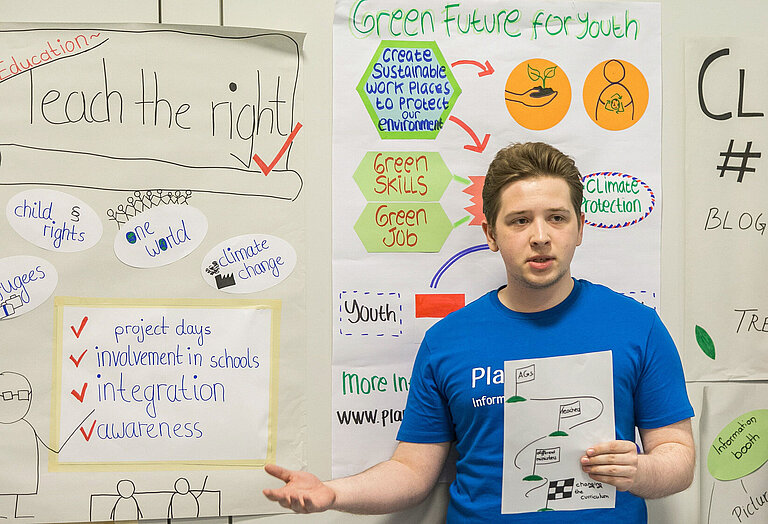 Education~
Teach the right
child § rights
one world
climate change
ugees
project days
involvement in schools
integration
awareness
Green Future for Youth
Create
Sustainable
work places
to protect
our
environment
Green
Skills
Green
Job
Climate
Protection
Youth
More In
www.plan
Pla
Inform
AGs
teachers
different
changing
the curriculum
CL
#
BLOG
TRE
Information
booth
Pictur